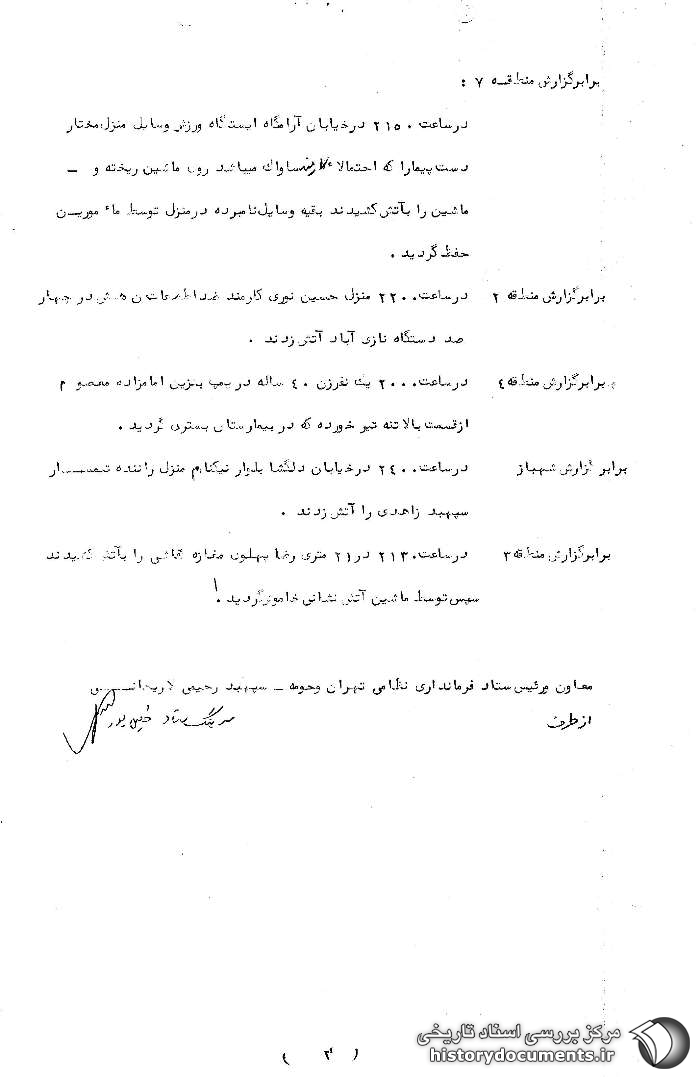 برابرگزارش منطقه ۷ :
درساعت ۲۱۵۰ درخیابان آرامگاه ایستگاه ورزش وسایل منزل مختار
دست پیمارا که احتمالا کارمند ساواک میباشد روی ماشین ریخته و –
ماشین را بآتش کشیدند بقیه وسایل نامبرده درمنزل توسط مأمورین
حفظ گردید .
برابرگزارش منطقه ۲ درساعت ۲۲۰۰ منزل حسین نوری کارمند ضداطلاعات ن هـ ش در چهار
صد دستگاه نازی آباد آتش زدند .
برابرگزارش منطقه ٤ درساعت ۲۰۰۰ یک نفرزن ٤۰ ساله در پمپ بنزین امامزاده معصوم
ازقسمت بالا تنه تیر خورده که در بیمارستان بستری گردید .
برابر گزارش شهباز درساعت ۲٤۰۰ درخیابان دلگشا بلوار نیکنام منزل راننده تیمسار
سپهبد زاهدی را آتش زدند .
برابرگزارش منطقه ۳ درساعت ۲۱۳۰ در ۲۱ متری رضا پهلوی مغازه کاشی را بآتش کشیدند
سپس توسط ماشین آتش نشانی خاموش گردید .
معاون ورئیس ستاد فرمانداری نظامی تهران وحومه – سپهبد رحیمی لاریجانی
ازطرف سرهنگ ستاد
( ۲ )
مرکز بررسی اسناد تاریخی
historydocuments.ir